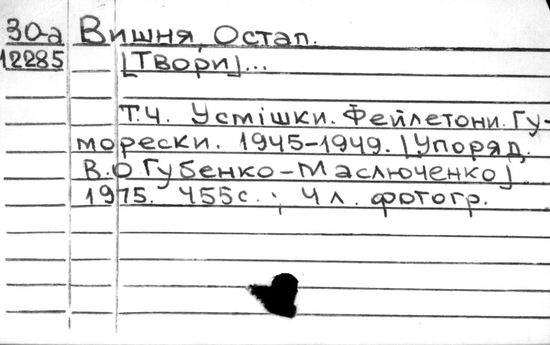 30-а Вишня, Остап.
12285 [Твори]...
Т.4. Усмішки. Фейлетони. Гу-
морески. 1945-1949. [Упоряд.
В.О Губенко-Маслюченко]
1975. 455с. ; 4 л. фотогр.